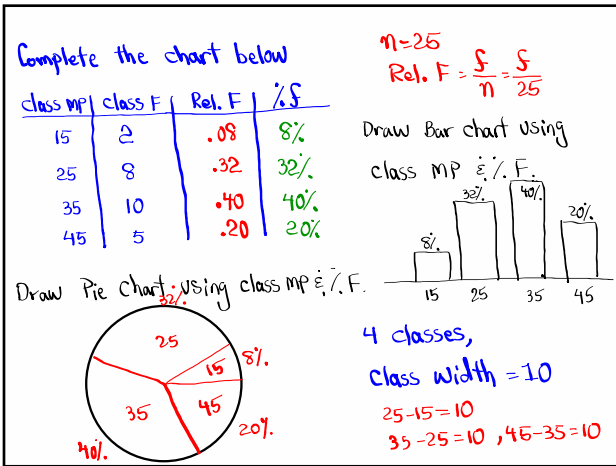 Complete the chart below
class MP | class F | Rel. F | % f
15 2 .08 8%
25 8 .32 32%
35 10 .40 40%
45 5 .20 20%
n=25
Rel. F = f/n = f/25
Draw Bar chart using
class MP & % F.
8% 32% 40% 20%
15 25 35 45
Draw Pie Chart using class MP & % F.
32%
25
15 8%
35 45
40% 20%
4 classes,
class width = 10
25-15=10
35-25=10, 45-35=10